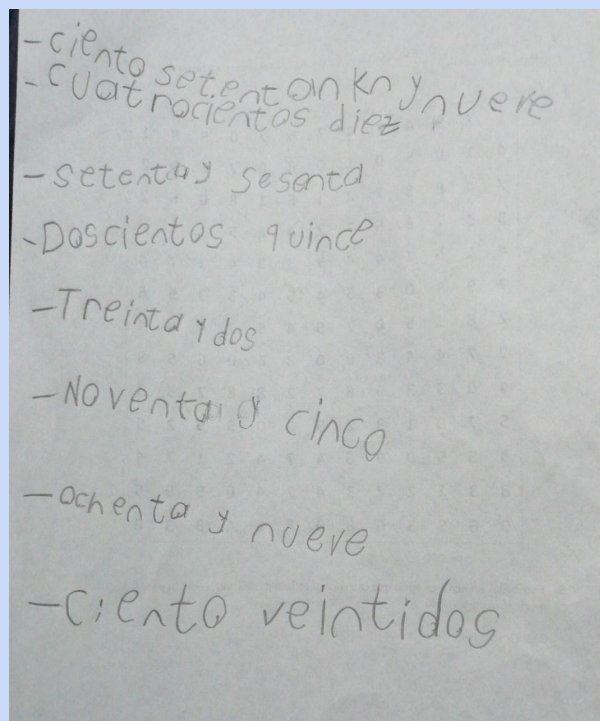 -ciento setentankn y nuere
-cuatrocientos diez
-setenta y sesenta
-Doscientos quince
-Treinta y dos
-Noventa y cinco
-ochenta y nueve
-ciento veintidos